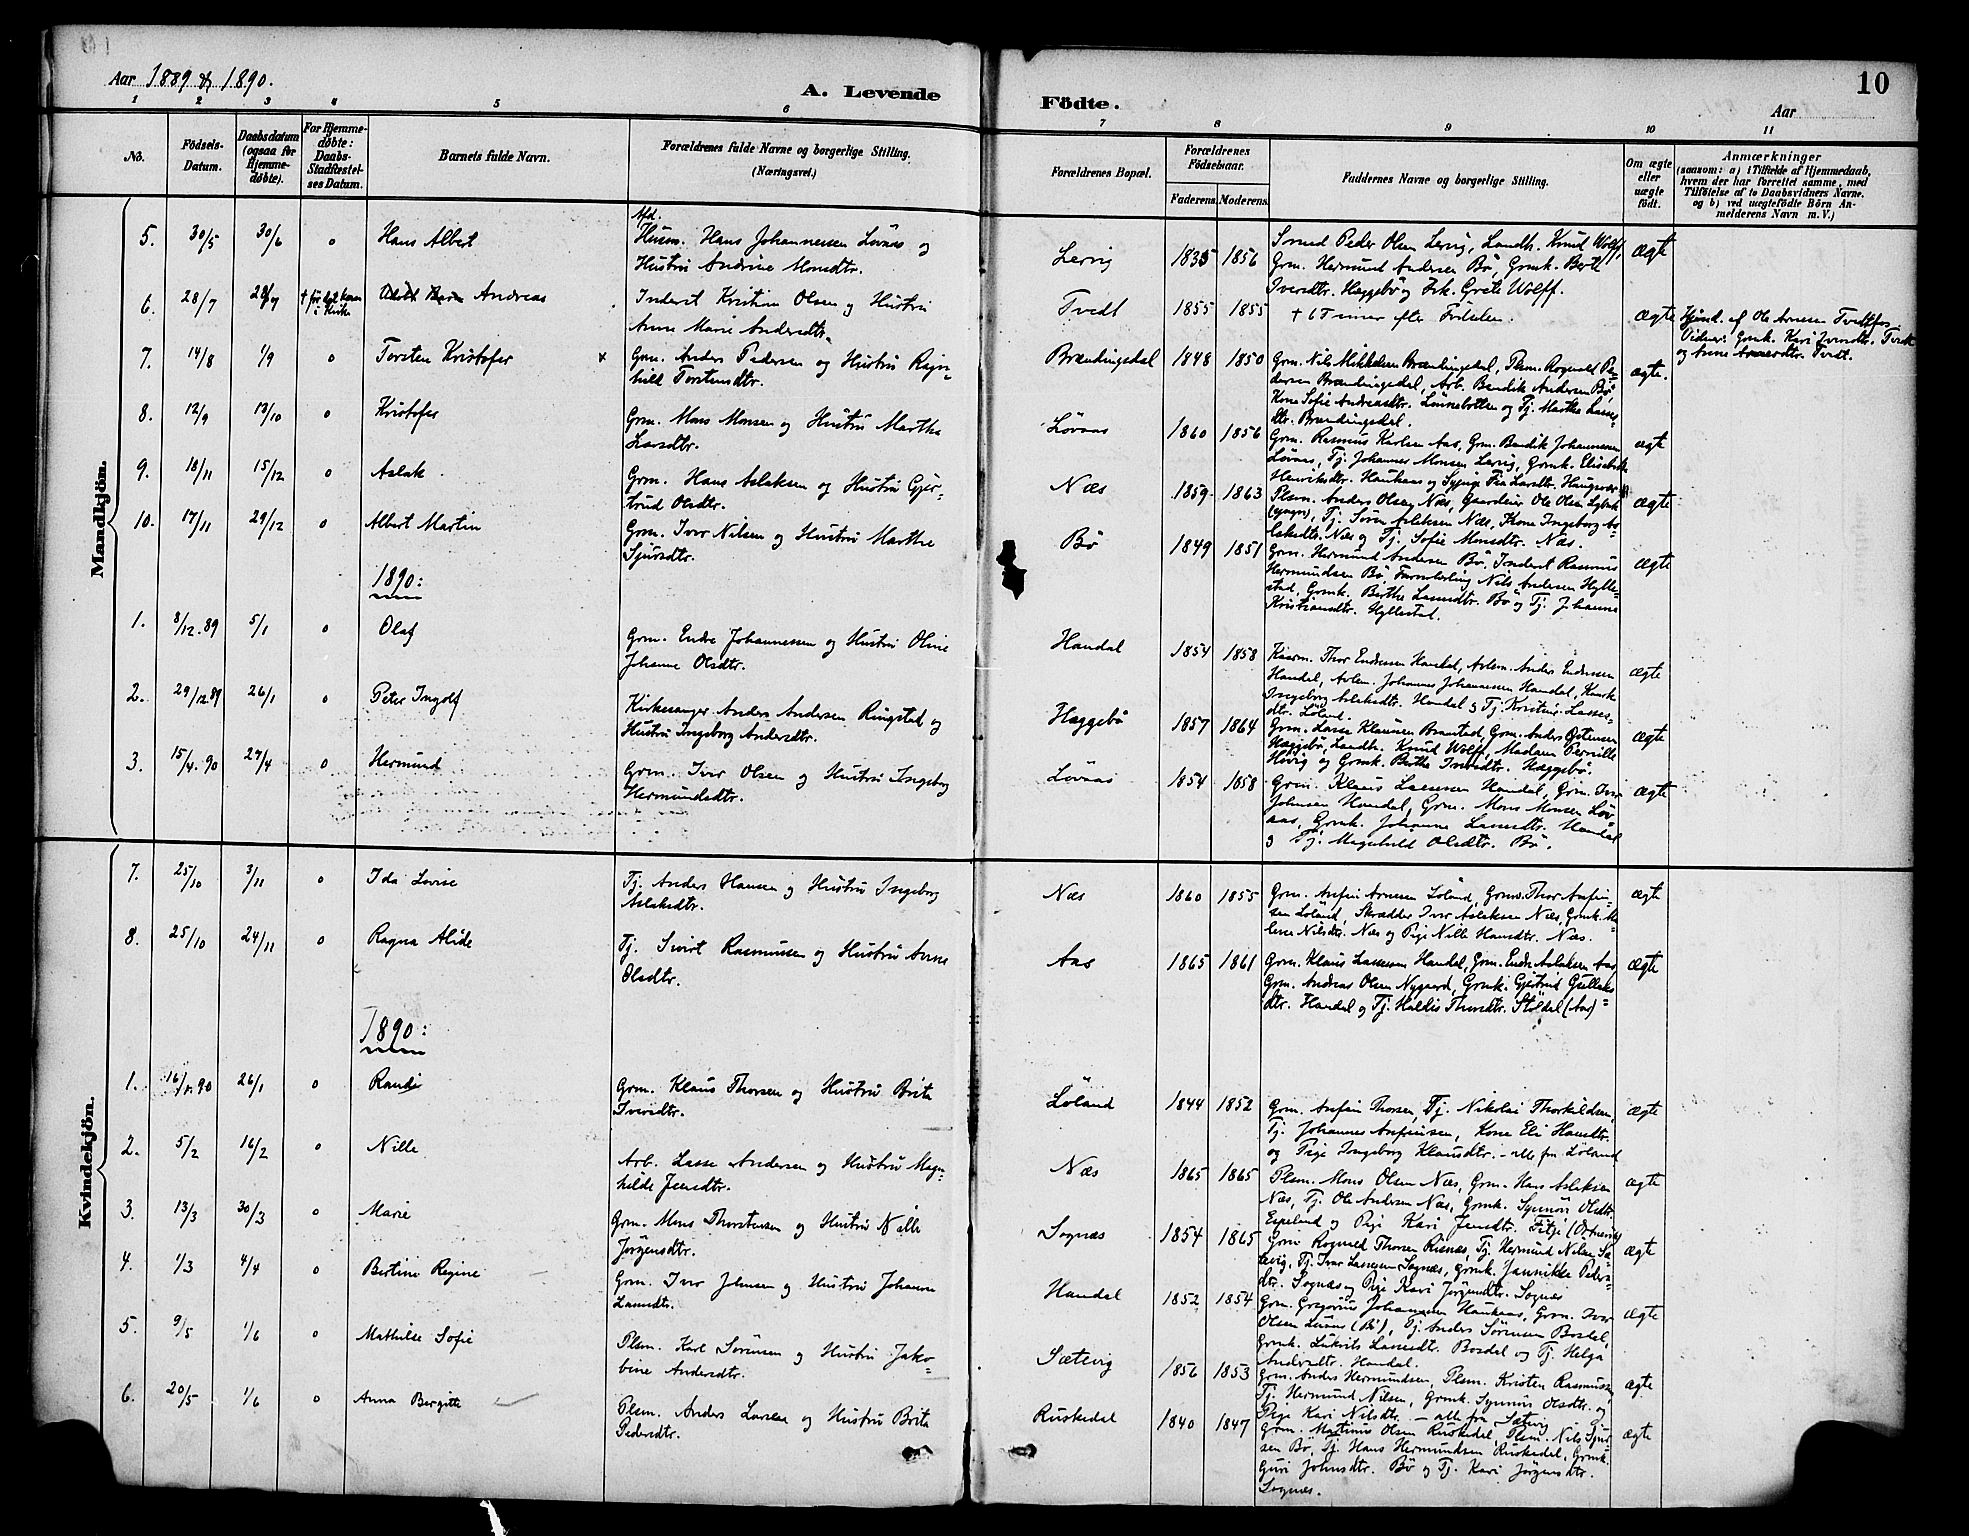 Aar 1889 & 1890.
A. Levende
Födte.
Aar
10
1 2 3 4 5 6 7 8 9 10 11
No.
Födsels-
Datum.
Daabsdatum
(ogsaa for
Hjemme-
døbte).
For Hjemme-
døbte:
Daabs-
Stadfæstel-
ses Datum.
Barnets fulde Navn.
Forældrenes fulde Navne og borgerlige Stilling.
(Næringsvei.)
Forældrenes Bopæl.
Forældrenes
Födselsaar.
Faderens. Moderens.
Faddernes Navne og borgerlige Stilling.
Om ægte
eller
uægte
født.
Anmærkninger
(saasom: a) i Tilfælde af Hjemmedaab,
hvem der har forrettet samme, med
Tilføielse af to Daabsvidners Navne,
og b) ved uægtefødte Börn An-
melderens Navn m. V.)
Mandkjön.
5. 30/5 30/6 o Hans Albert
Afd.
Husm. Hans Johannessen Lövaas og
Hustru Andrine Monsdtr.
Lervig 1835 1856
Smed Peder Olsen Lervig, Landh. Knud Wolff,
Grm. Hermund Andersen Bö, Grmk. Berte
Iversdtr. Hæggebö og Frk. Grete Wolff.
ægte
6. 28/7 28/7 Andreas
Inderst Kristian Olsen og Hustru
Anne Marie Andersdtr.
Tvedt 1855 1855
+ 6 Timer efter Födselen.
ægte
Hjmd. af Ole Arnesen Tvedt
Vidner: Grmk. Kari Tvedt
og Anne Tvedt.
7. 14/8 1/9 o Torsten Kristofer x
Grm. Anders Pedersen og Hustru Ragn-
hild Torstensdtr.
Brændingsdal 1848 1850
Grm. Nils Mikkelsen Brændingsdal, Plsm. Rognald Pe-
dersen Brændingsdal, Arb. Bendik Andersen Bö,
Kone Sofie Andreasdtr. Lönnebotten og Tj. Marthe Lasse-
dtr. Brændingsdal.
ægte.
8. 12/9 13/10 o Kristofer
Grm. Mons Monsen og Hustru Marthe
Larsdtr.
Lövaas 1860 1856
Grm. Rasmus Karlsen Aas, Grm. Bendik Johannessen
Lövaas, Tj. Johannes Monsen Lervig, Grmk. Elisabeth
Henriksdtr. Haukaas og
ægte
9. 18/11 15/12 o Aslak
Grm. Hans Aslaksen og Hustru Gjer-
trud Olsdtr.
Næs 1859 1863
Plsm. Anders Olsen Næs, Gaardeier Ole Olsen
Tj. Sören Aslaksen Næs, Kone Ingeborg As-
laksdtr. Næs og Tj. Sofie Monsdtr. Næs.
ægte
10. 17/11 29/12 o Albert Martin
Grm. Iver Nilsen og Hustru Marthe
Sjursdtr.
Bö 1849 1851
Grm. Hermund Andersen Bö, Inderst Rasmus
Hermundsen Bö, Nils Andersen Hylle-
stad, Grmk. Berthe Lassedtr. Bö og Tj. Johanne
Kristiansdtr. Hyllestad.
ægte
1890:
1. 8/12.89 5/1 o Olaf
Grm. Endre Johannessen og Hustru Oline
Johanne Olsdtr.
Handal 1854 1858
Kaarm. Thor Endresen Handal, Anders Endresen
Handal, Johannes Johannessen Handal, Kaark.
Ingeborg Aslaksdtr. Handal og Tj. Kristine Lasses-
dtr. Löland.
ægte
2. 29/12.89 26/1 o Peter Ingolf
Kirkesanger Anders Andersen Ringstad og
Hustru Ingeborg Andersdtr.
Hæggebö 1857 1864
Grm. Lasse Klausen Branstad, Grm. Anders Östensen
Hæggebö, Landh. Knud Wolff, Madam Pernille
Hövig og Grmk. Brithe Iversdtr. Hæggebö.
ægte
3. 15/4.90 27/4 o Hermund
Grm. Iver Olsen og Hustru Ingeborg
Hermundsdtr.
Lövaas 1854 1858
Grm. Klaus Lassesen Handal, Grm. Iver
Johnsen Handal, Grm. Mons Monsen Löv-
aas, Grmk. Johanne Lassedtr. Handal
og Tj. Magnhild Olsdtr. Bö.
ægte
Kvindekjön.
7. 25/10 3/11 o Ida Lovise
Tj. Anders Hansen og Hustru Ingeborg
Aslaksdtr.
Næs 1860 1855
Grm. Anfin Arnesen Löland, Grms. Thor Anfin-
sen Löland, Skrædder Iver Aslaksen Næs, Grmk. Ma-
lene Nilsdtr. Næs og Pige Nille Hansdtr. Næs.
ægte
8. 25/10 24/11 o Ragna Alide
Tj. Sivert Rasmussen og Hustru Anne
Olsdtr.
Aas 1865 1861
Grm. Klaus Lassesen Handal, Grm. Endre Aslaksen Aas,
Grm. Andreas Olsen Nygaard, Grmk. Gjertrud Gullaks-
dtr. Handal og Tj. Haldis Thorsdtr. Stöldal (Aas)
ægte
1890:
1. 16/1.90 26/1 o Randi
Grm. Klaus Thorsen og Hustru Brita
Iversdtr.
Löland 1844 1852
Grm. Anfin Thorsen, Tj. Nikolai Thorkildsen,
Tj. Johannes Anfinsen, Kone Eli Hansdtr.
og Pige Ingeborg Klausdtr. - alle fra Löland
ægte
2. 5/2 16/2 o Nille
Arb. Lasse Andersen og Hustru Mag-
hilde Jensdtr.
Næs 1865 1865
Plsm. Mons Olsen Næs, Grm. Hans Aslaksen
Næs, Tj. Ole Andersen Næs, Grmk. Synnöv Olsdtr.
Espeland og Pige Kari Jensdtr. Fitje
ægte
3. 13/3 30/3 o Marie
Grm. Mons Thorstensen og Hustru Nille
Jörgensdtr.
Sognæs 1854 1865
Grm. Rognald Thorsen Risnæs, Tj. Hermund Nilsen Sæ-
tevig, Tj. Iver Lassesen Sognæs, Grmk. Jannikke Peders-
dtr. Sognæs og Pige Kari Jörgensdtr. Sognæs
ægte
4. 1/3 4/4 o Bertine Regine
Grm. Iver Johnsen og Hustru Johanne
Lassedtr.
Handal 1852 1854
Grm. Gregorius Johannessen Haukaas, Grm. Iver
Olsen Lövaas (Bö), Tj. Anders Sörensen Bosdal,
Grmk. Lukris Lassedtr. Bosdal og Tj. Helga
Andersdtr. Handal.
ægte
5. 9/5 1/6 o Mathilde Sofie
Plsm. Karl Sörensen og Hustru Jako-
bine Andersdtr.
Sætevig 1856 1853
Grm. Anders Hermundsen, Plsm. Kristen Rasmussen,
Tj. Hermund Nilsen, Grmk. Synnöv Olsdtr. og
Pige Kari Nilsdtr. - alle fra Sætevig
ægte
6. 20/5 1/6 o Anna Bergitte
Plsm. Anders Larsen og Hustru Brita
Pedersdtr.
Ruskedal 1840 1847
Grm. Martinus Olsen Ruskedal, Plsm. Nils Sjur-
sen Bö, Tj. Hans Hermundsen Ruskedal, Grmk.
Guri Johnsdtr. Bö og Tj. Kari Jörgensdtr.
Sognæs.
ægte